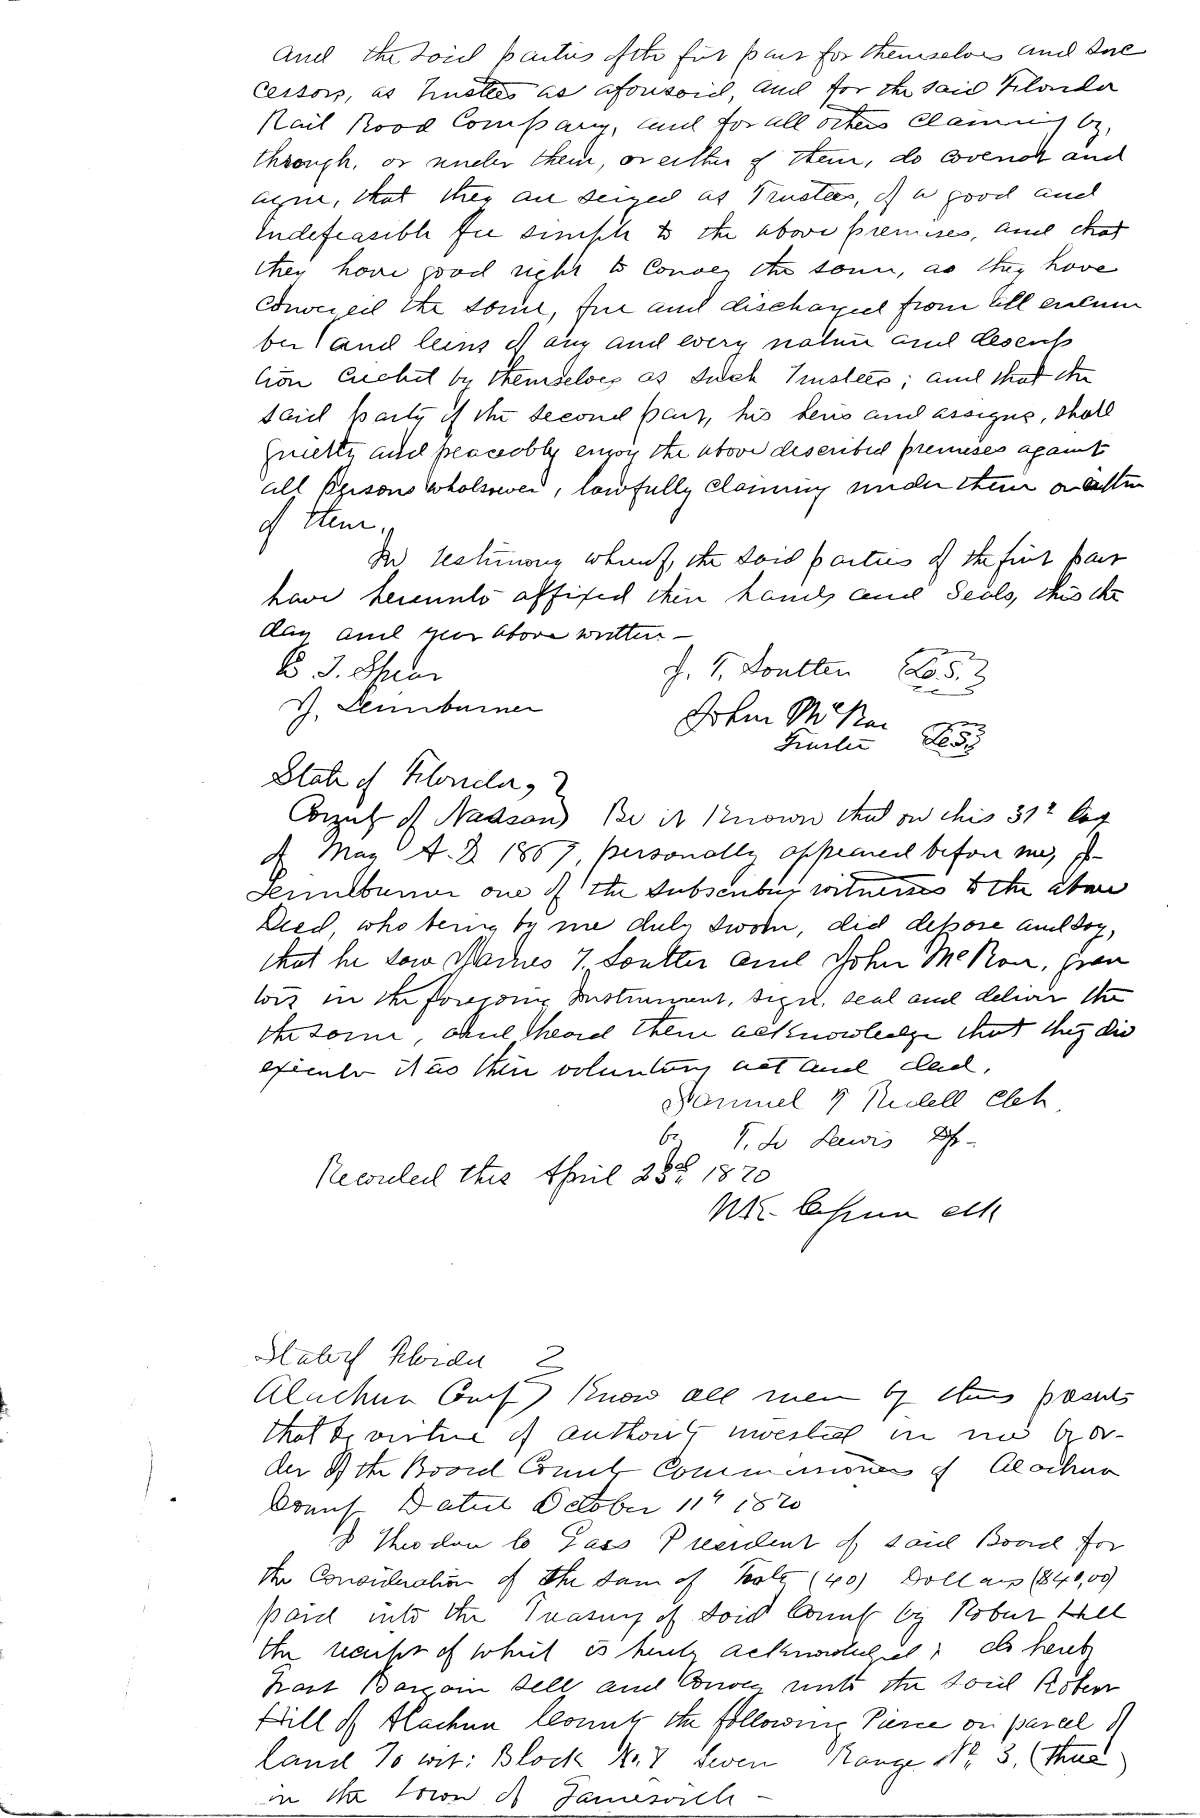 and the said parties of the first part for themselves and suc
cessors, as Trustees as aforesaid, and for the said Florida
Rail Road Company, and for all others claiming by,
through, or under them, or either of them, do covenant and
agree, that they are seized as Trustees, of a good and
indefeasible fee simple to the above premises, and that
they have good right to convey the same, as they have
conveyed the same, free and discharged from all encum
ber and leins of any and every nature and descrip
tion created by themselves as such Trustees; and that the
said party of the second part, his heirs and assigns, shall
quietly and peaceably enjoy the above described premises against
all Persons whatsoever, lawfully claiming under them or either
of them.
In testimony whereof, the said parties of the first part
have hereunto affixed their hands and Seals, this the
day and year above written —
E. J. Spear J. T. Soutter L.S.
J. Leinburner John McRae
Trustee L.S.
State of Florida,
County of Nassau Be it Known that on this 31st day
of May A.D 1867, personally appeared before me, J.
one of the subscribing witnesses to the above
Deed, who being by me duly sworn, did depose and say,
that he saw James T. Soutter and John McRae, gran
tors in the foregoing Instrument, sign, seal and deliver the
the same, and heard them acknowledge that they did
execute it as their voluntary act and deed.
Samuel T Riddell Clk,
by T. Lewis Dp-
Recorded this April 23rd 1870
Clk
State of Florida
Alachua County Know all men by these presents
that by virtue of authority invested in me by or-
der of the Board County Commissioners of Alachua
County Dated October 11th 1870
I Theodore Gass President of said Board for
the Consideration of the sum of Forty (40) Dollars ($40,00)
paid into the Treasury of said County by Robert Hill
the receipt of which is hereby acknowledged; do hereby
Grant Bargain Sell and Convey unto the said Robert
Hill of Alachua County the following Pierce or parcel of
land To wit: Block No. 7 Seven Range No. 3. (three)
in the town of Gainesville —